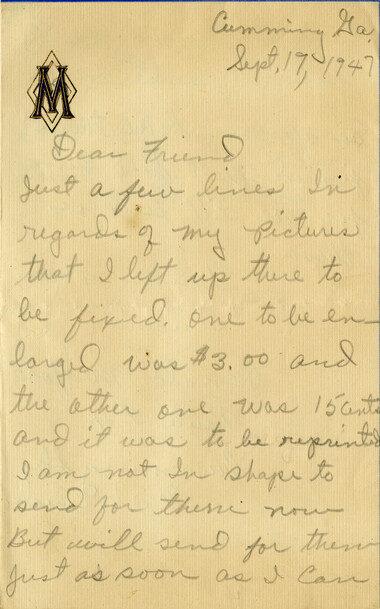 Cumming Ga.
Sept. 17, 1947
M
Dear Friend
Just a few lines In
regards of my Pictures
that I left up there to
be fixed. one to be en-
larged was $3.00 and
the other one was 15 cents
and it was to be reprinted
I am not In shape to
send for them now
But will send for them
Just as soon as I Can